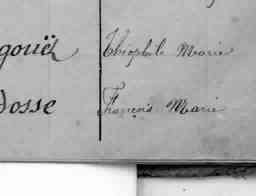 gouëz Théophile Marie
dosse François Marie